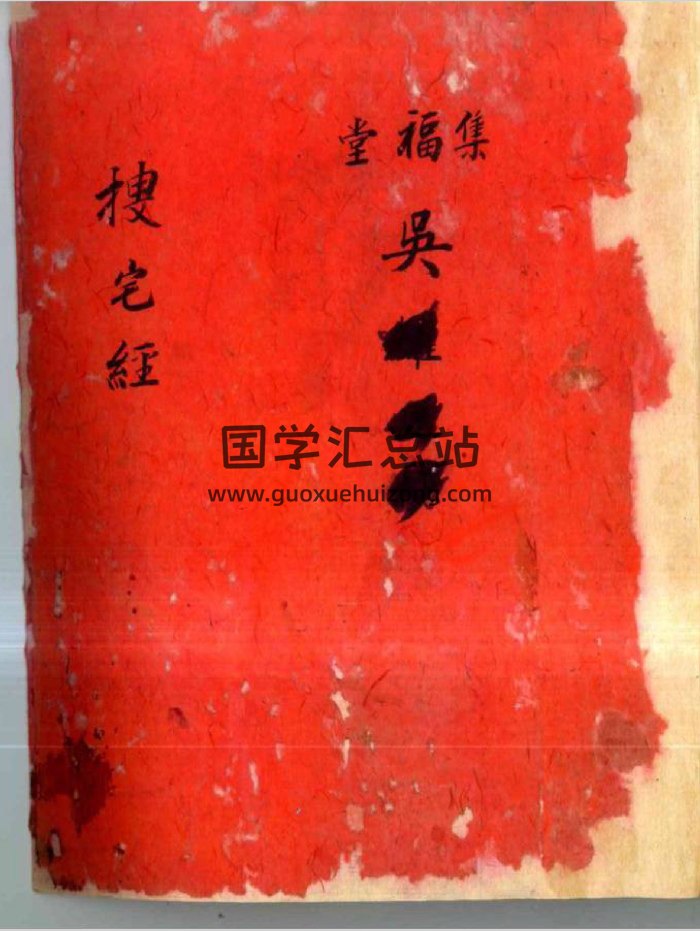 集福堂
吳
搜宅經
国学汇总站
www.guoxuehuizong.com